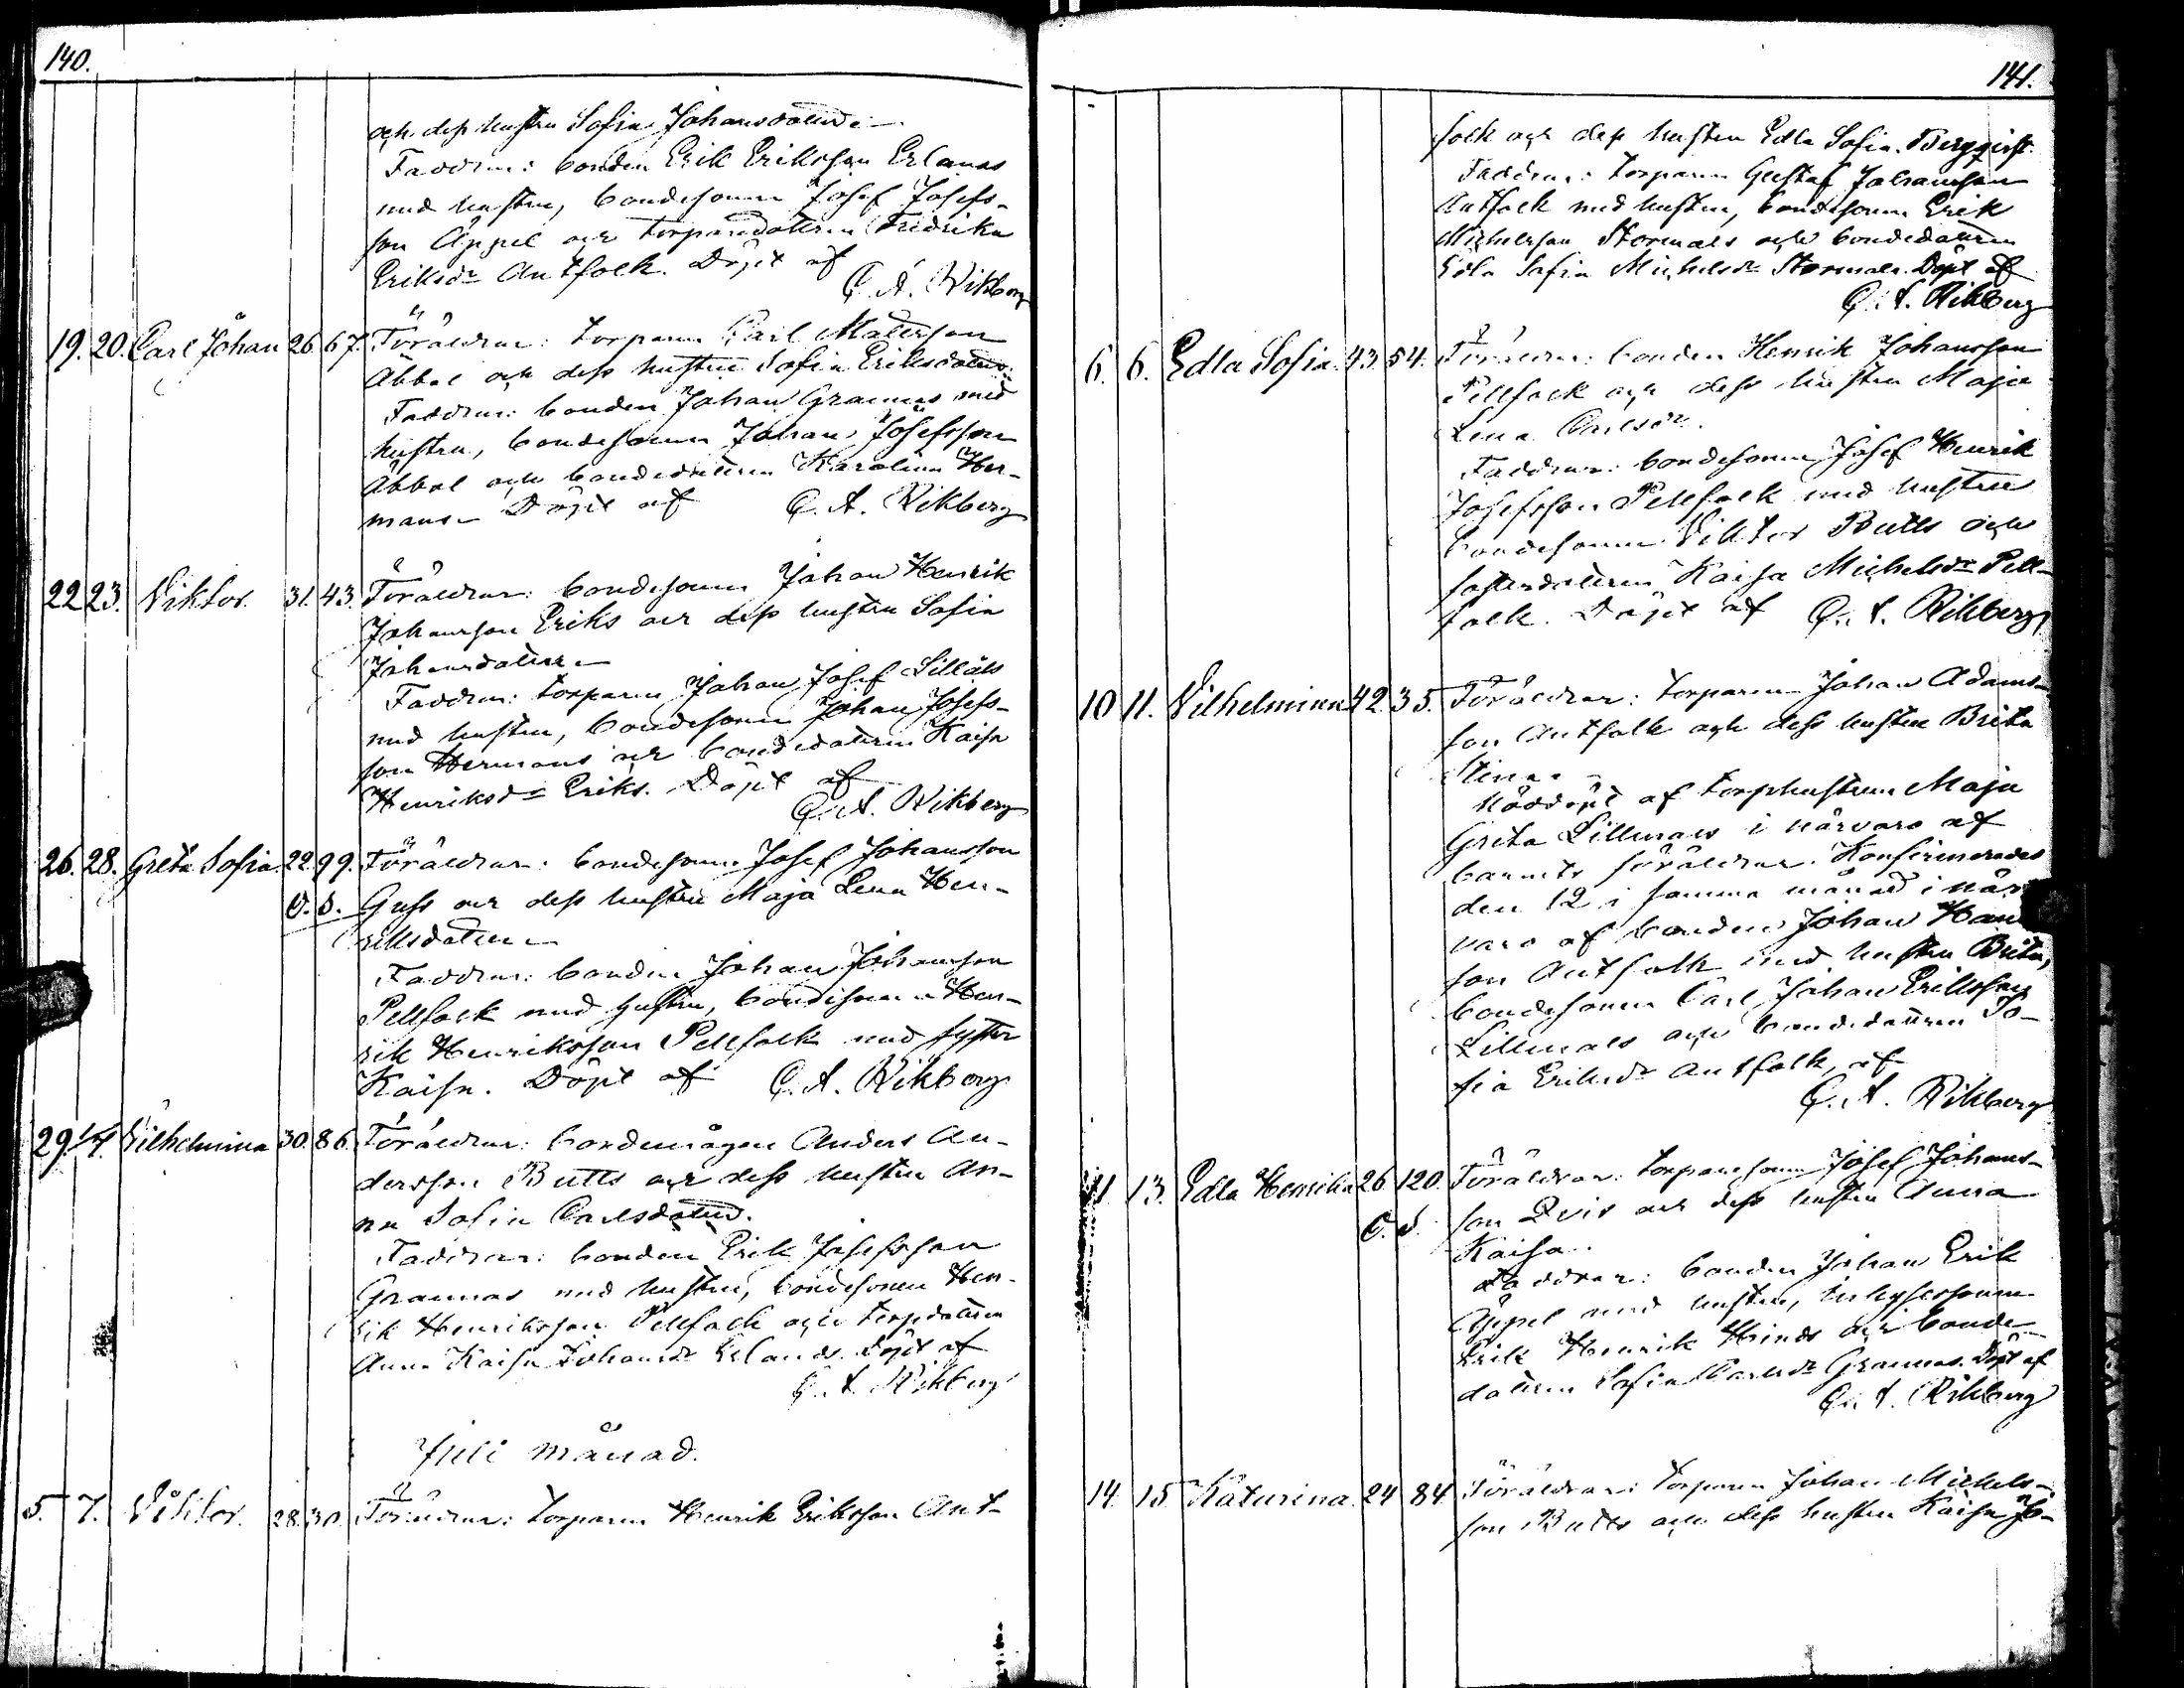 140.
och dess hustru Sofia Johansdotter.
Faddrar: bonden Erik Eriksson Erlands
med hustru, bondesonen Josef Josefs-
son Äppel och torparedottren Fredrika
Eriksdr Antfolk. Döpt af
C. A. Wikberg
19. 20. Carl Johan 26. 67. Föräldrar: torparen Carl Matersson
Abbal och dess hustru Sofia Eriksdotter.
Faddrar: bonden Johan Grannas med
hustru, bondesonen Johan Josefsson
Abbal och bondedottren Karolina Her-
mans. Döpt af C. A. Wikberg
22 23. Viktor. 31. 43. Föräldrar: bondesonen Johan Henrik
Johansson Eriks och dess hustru Sofia
Johansdotter.
Faddrar: torparen Johan Josef Silläls
med hustru, bondesonen Johan Josefs-
son Hermans och bondedottren Kaisa
Henriksdr Eriks. Döpt af
C. A. Wikberg
26. 28. Greta Sofia. 22. 99. Föräldrar: bondesonen Josef Johansson
O. S. Guss och dess hustru Maja Lena Hen-
riksdotter.
Faddrar: bonden Johan Johansson
Pellfolk med hustru, bondesonen Hen-
rik Henriksson Pellfolk med syster
Kaisa. Döpt af C. A. Wikberg
29. 1/7. Vilhelmina 30. 86. Föräldrar: bondemågen Anders An-
dersson Butts och dess hustru An-
na Sofia Carlsdotter.
Faddrar: bonden Erik Josefsson
Grannas med hustru, bondesonen Hen-
rik Henriksson Pellfolk och torpdottren
Anna Kaisa Johansdr Erlands. Döpt af
C. A. Wikberg
Juli månad.
5. 7. Viktor. 28. 30. Föräldrar: torparen Henrik Eriksson Ant-
141.
folk och dess hustru Edla Sofia Bergqvist.
Faddrar: torparen Gustaf Johansson
Antfolk med hustru, bondesonen Erik
Michelsson Stormals och bondedottren
Edla Sofia Michelsdr Stormals. Döpt af
C. A. Wikberg
6. 6. Edla Sofia. 43. 54. Föräldrar: bonden Henrik Johansson
Pellfolk och dess hustru Maja
Lena Carlsdr.
Faddrar: bondesonen Josef Henrik
Josefsson Pellfolk med hustru
bondesonen Viktor Butts och
dottren Kaisa Michelsdr Pell-
folk. Döpt af C. A. Wikberg
10 11. Vilhelmina 42. 35. Föräldrar: torparen Johan Adams-
son Antfolk och dess hustru Brita
Stina.
Nöddöpt af torphustrun Maja
Greta Lillmals i närvaro af
barnets föräldrar. Konfirmerades
den 12 i samma månad i när-
varo af bonden Johan Hans
son Antfolk med hustru Brita,
bondesonen Carl Johan Eriksson
Lillmals och bondedottren So-
fia Eriksdr Antfolk, af
C. A. Wikberg
11. 13. Edla Henrika 26 120. Föräldrar: torparesonen Josef Johans-
O. S. son Qvis och dess hustru Anna
Kaisa.
Faddrar: bonden Johan Erik
Äppel med hustru, inhysessonen
Erik Henrik Hinds och bonde-
dottren Sofia Carlsdr Grannas. Döpt af
C. A. Wikberg
14. 15. Katarina. 24 84. Föräldrar: torparen Johan Michels-
son Butts och dess hustru Kaisa Jo-